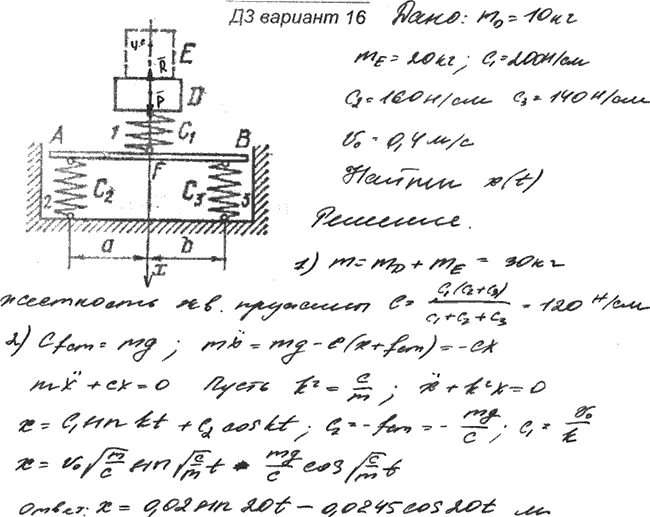 ДЗ вариант 16
Дано: m_D = 10кг
m_E = 20кг; c₁ = 200Н/см
c₂ = 160Н/см c₃ = 140Н/см
v₀ = 0,4 м/с
Найти x(t)
Решение.
E
R̄
D
P̄
1 C₁
A B
F
2 C₂ C₃ 3
a b
x
1) m = m_D + m_E = 30кг
жесткость экв. пружины C = c₁(c₂+c₃) / (c₁+c₂+c₃) = 120 Н/см
2) Cf_ст = mg; mẍ = mg - c(x+f_ст) = -cx
mẍ + cx = 0 Пусть k² = c/m; ẍ + k²x = 0
x = C₁ sin kt + C₂ cos kt; C₂ = -f_ст = - mg/c; C₁ = v₀/k
x = v₀ √(m/c) sin √(c/m) t - mg/c cos √(c/m) t
Ответ: x = 0,02 sin 20t - 0,0245 cos 20t м